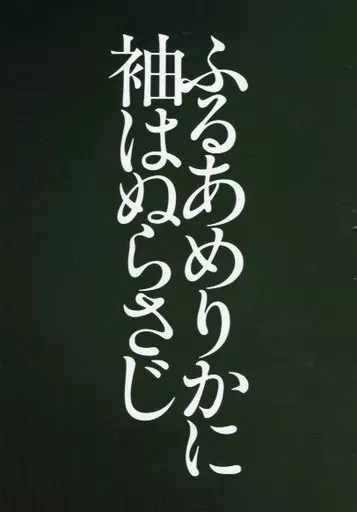 ふるあめりかに
袖はぬらさじ